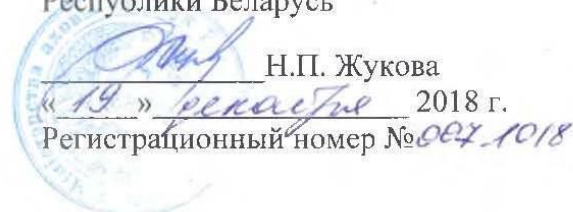 Республики Беларусь
Н.П. Жукова
«19» декабря 2018 г.
Регистрационный номер №007-1018